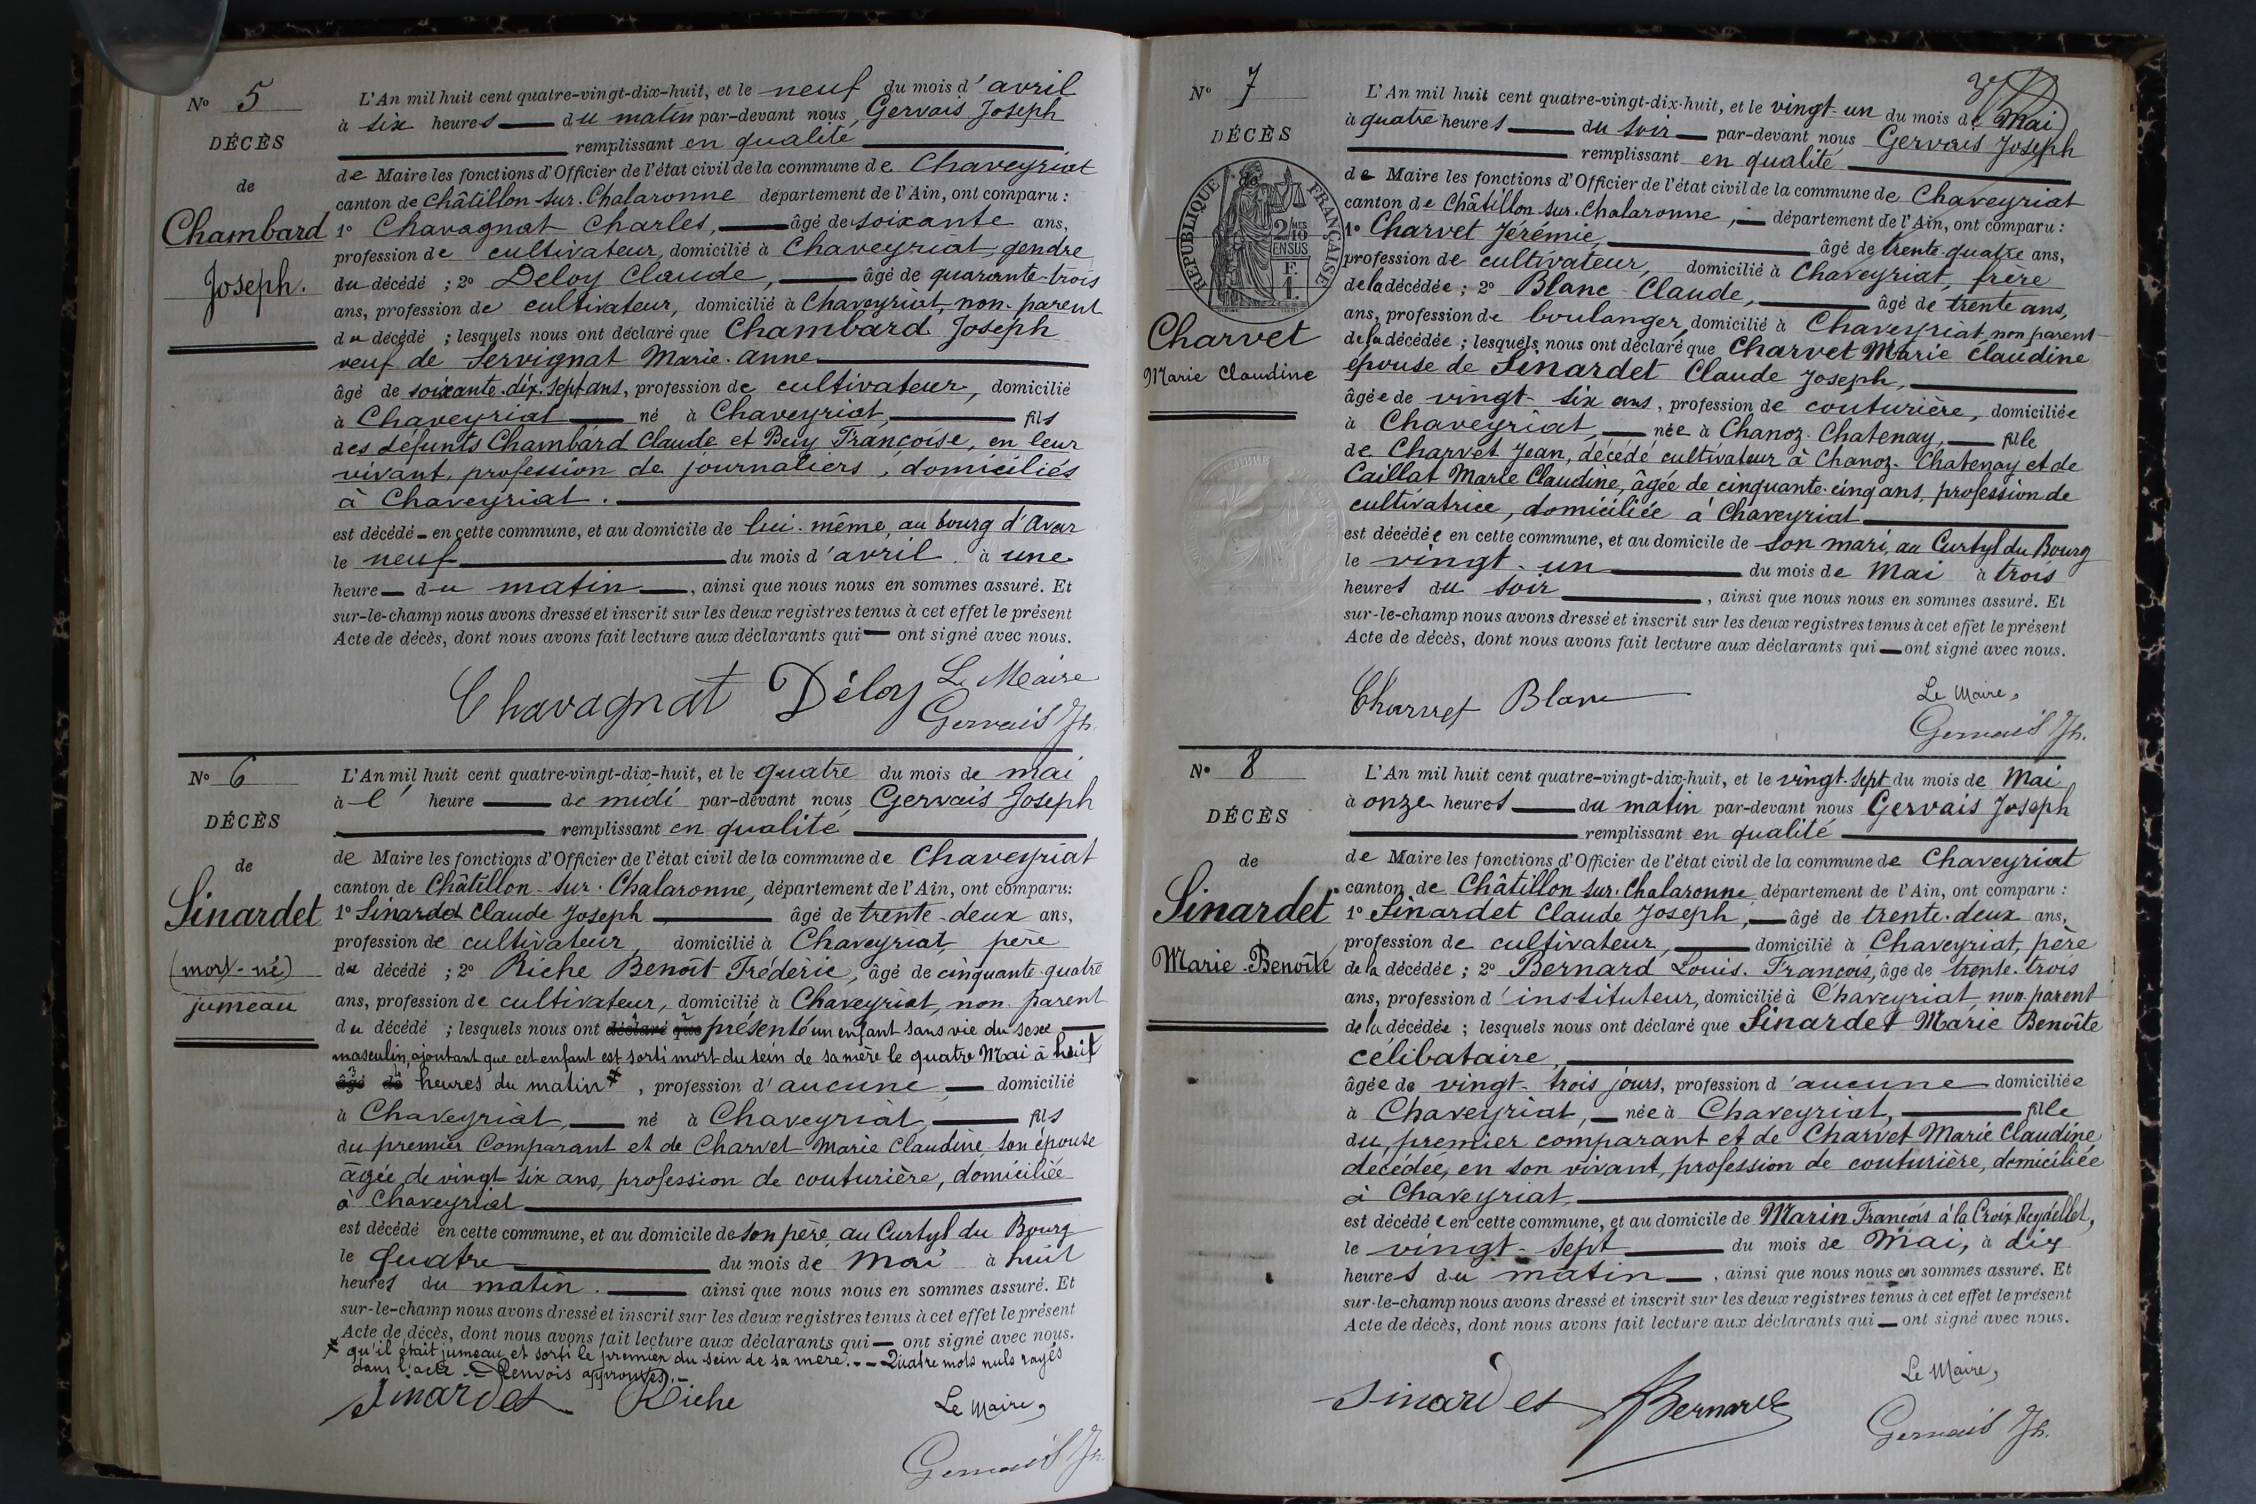 N° 5
DÉCÈS
de
Chambard
Joseph.
L'An mil huit cent quatre-vingt-dix-huit, et le neuf du mois d'avril
à six heures du matin par-devant nous Gervais Joseph
remplissant en qualité
de Maire les fonctions d'Officier de l'état civil de la commune de Chaveyriat
canton de Châtillon-sur-Chalaronne département de l'Ain, ont comparu :
1° Chavagnat Charles, âgé de soixante ans,
profession de cultivateur, domicilié à Chaveyriat, gendre
du décédé ; 2° Deloy Claude, âgé de quarante-trois
ans, profession de cultivateur, domicilié à Chaveyriat, non-parent
du décédé ; lesquels nous ont déclaré que Chambard Joseph
veuf de Servignat Marie-Anne
âgé de soixante-dix-sept ans, profession de cultivateur, domicilié
à Chaveyriat né à Chaveyriat, fils
des défunts Chambard Claude et Françoise, en leur
vivant, profession de journaliers, domiciliés
à Chaveyriat.
est décédé en cette commune, et au domicile de lui-même, au bourg d'Avar
le neuf du mois d'avril à une
heure du matin, ainsi que nous nous en sommes assuré. Et
sur-le-champ nous avons dressé et inscrit sur les deux registres tenus à cet effet le présent
Acte de décès, dont nous avons fait lecture aux déclarants qui ont signé avec nous.
Chavagnat Déloy Le Maire
Gervais Jh.
N° 6
DÉCÈS
de
Sinardet
(mort-né)
jumeau
L'An mil huit cent quatre-vingt-dix-huit, et le quatre du mois de mai
à l' heure de midi par-devant nous Gervais Joseph
remplissant en qualité
de Maire les fonctions d'Officier de l'état civil de la commune de Chaveyriat
canton de Châtillon-sur-Chalaronne, département de l'Ain, ont comparu :
1° Sinardet Claude Joseph, âgé de trente-deux ans,
profession de cultivateur, domicilié à Chaveyriat, père
du décédé ; 2° Riche Benoît Frédéric, âgé de cinquante-quatre
ans, profession de cultivateur, domicilié à Chaveyriat, non-parent
du décédé ; lesquels nous ont déclaré que présenté un enfant sans vie du sexe
masculin, ajoutant que cet enfant est sorti mort du sein de sa mère le quatre Mai à huit
âgé de heures du matin #, profession d'aucune, domicilié
à Chaveyriat, né à Chaveyriat, fils
du premier Comparant et de Charvet Marie Claudine son épouse
âgée de vingt-six ans, profession de couturière, domiciliée
à Chaveyriat
est décédé en cette commune, et au domicile de son père au Curtyl du Bourg
le quatre du mois de mai à huit
heures du matin. ainsi que nous nous en sommes assuré. Et
sur-le-champ nous avons dressé et inscrit sur les deux registres tenus à cet effet le présent
Acte de décès, dont nous avons fait lecture aux déclarants qui ont signé avec nous.
# qu'il était jumeau et sorti le premier du sein de sa mère. -- Quatre mots nuls rayés
dans l'acte. Renvois approuvés.
Sinardet Riche
Le Maire,
Gervais Jh.
N° 7
DÉCÈS
RÉPUBLIQUE FRANÇAISE
2/10MES
EN SUS
F.
1.
Charvet
Marie Claudine
L'An mil huit cent quatre-vingt-dix-huit, et le vingt-un du mois de Mai
à quatre heures du soir par-devant nous Gervais Joseph
remplissant en qualité
de Maire les fonctions d'Officier de l'état civil de la commune de Chaveyriat
canton de Châtillon-sur-Chalaronne, département de l'Ain, ont comparu :
1° Charvet Jérémie, âgé de trente-quatre ans,
profession de cultivateur, domicilié à Chaveyriat, frère
de la décédée ; 2° Blanc Claude, âgé de trente ans,
ans, profession de boulanger, domicilié à Chaveyriat, non parent
de la décédée ; lesquels nous ont déclaré que Charvet Marie Claudine
épouse de Sinardet Claude Joseph,
âgée de vingt-six ans, profession de couturière, domiciliée
à Chaveyriat, née à Chanoz-Chatenay, fille
de Charvet Jean, décédé cultivateur à Chanoz-Chatenay et de
Caillat Marie Claudine, âgée de cinquante-cinq ans, profession de
cultivatrice, domiciliée à Chaveyriat
est décédée en cette commune, et au domicile de son mari, au Curtyl du Bourg
le vingt-un du mois de Mai à trois
heures du soir, ainsi que nous nous en sommes assuré. Et
sur-le-champ nous avons dressé et inscrit sur les deux registres tenus à cet effet le présent
Acte de décès, dont nous avons fait lecture aux déclarants qui ont signé avec nous.
Charvet Blanc
Le Maire,
Gervais Jh.
N° 8
DÉCÈS
de
Sinardet
Marie-Benoîte
L'An mil huit cent quatre-vingt-dix-huit, et le vingt-sept du mois de Mai
à onze heures du matin par-devant nous Gervais Joseph
remplissant en qualité
de Maire les fonctions d'Officier de l'état civil de la commune de Chaveyriat
canton de Châtillon-sur-Chalaronne département de l'Ain, ont comparu :
1° Sinardet Claude Joseph, âgé de trente-deux ans,
profession de cultivateur, domicilié à Chaveyriat, père
de la décédée ; 2° Bernard Louis-François, âgé de trente-trois
ans, profession d'instituteur, domicilié à Chaveyriat, non-parent
de la décédée ; lesquels nous ont déclaré que Sinardet Marie Benoîte
célibataire,
âgée de vingt-trois jours, profession d'aucune domiciliée
à Chaveyriat, née à Chaveyriat, fille
du premier comparant et de Charvet Marie Claudine
décédée, en son vivant, profession de couturière, domiciliée
à Chaveyriat
est décédée en cette commune, et au domicile de Marin François à la Croix Reydellet,
le vingt-sept du mois de Mai, à dix
heures du matin, ainsi que nous nous en sommes assuré. Et
sur-le-champ nous avons dressé et inscrit sur les deux registres tenus à cet effet le présent
Acte de décès, dont nous avons fait lecture aux déclarants qui ont signé avec nous.
Sinardet Bernard
Le Maire,
Gervais Jh.